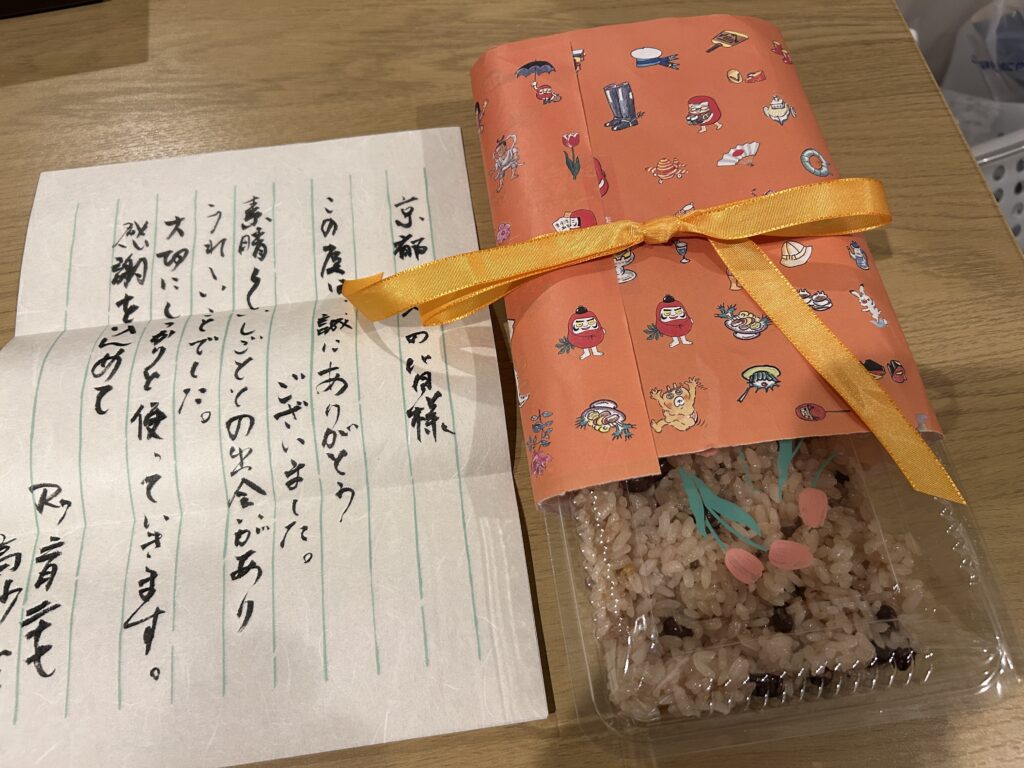 京都への皆様
この度は、誠にありがとう
ございました。
素晴らしいしごととの出会いがあり
うれしいことでした。
大切にしっかりと使っていきます。
感謝を込めて